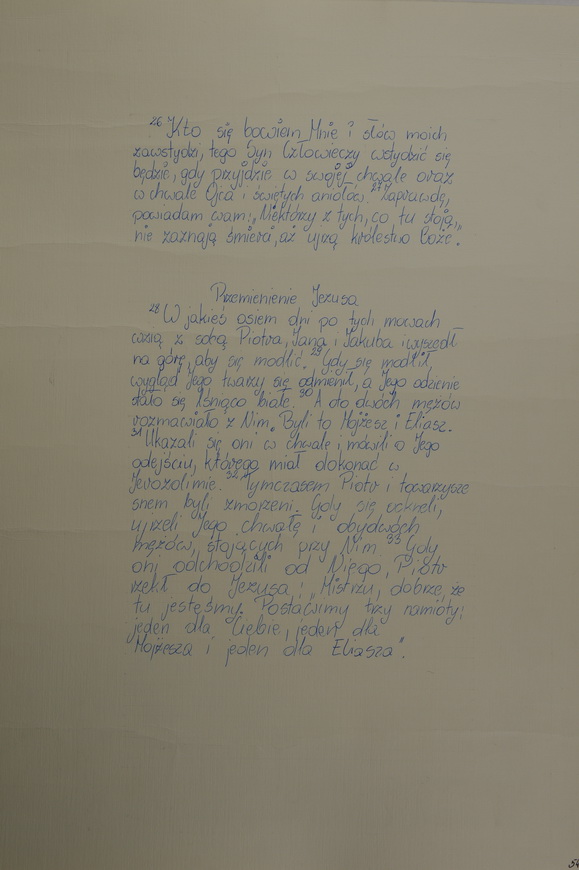 26 Kto się bowiem Mnie i słów moich
zawstydzi, tego Syn Człowieczy wstydzić się
będzie, gdy przyjdzie w swojej chwale oraz
w chwale Ojca i świętych aniołów. 27 Zaprawdę,
powiadam wam: „Niektórzy z tych, co tu stoją,
nie zaznają śmierci, aż ujrzą królestwo Boże".
Przemienienie Jezusa
28 W jakieś osiem dni po tych mowach
wziął z sobą Piotra, Jana i Jakuba i wyszedł
na górę, aby się modlić. 29 Gdy się modlił,
wygląd Jego twarzy się odmienił, a Jego odzienie
stało się lśniąco białe. 30 A oto dwóch mężów
rozmawiało z Nim. Byli to Mojżesz i Eliasz.
31 Ukazali się oni w chwale i mówili o Jego
odejściu, którego miał dokonać w
Jerozolimie. 32 Tymczasem Piotr i towarzysze
snem byli zmorzeni. Gdy się ocknęli,
ujrzeli Jego chwałę i obydwóch
mężów, stojących przy Nim. 33 Gdy
oni odchodzili od Niego, Piotr
rzekł do Jezusa: „Mistrzu, dobrze, że
tu jesteśmy. Postawimy trzy namioty:
jeden dla Ciebie, jeden dla
Mojżesza i jeden dla Eliasza".
54